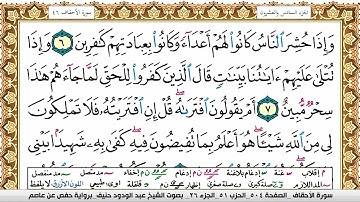 سورة الأحقاف ٤٦
الجزء السادس والعشرون
وَإِذَا حُشِرَ ٱلنَّاسُ كَانُوا۟ لَهُمْ أَعْدَآءً وَكَانُوا۟ بِعِبَادَتِهِمْ كَٰفِرِينَ ٦ وَإِذَا
تُتْلَىٰ عَلَيْهِمْ ءَايَٰتُنَا بَيِّنَٰتٍ قَالَ ٱلَّذِينَ كَفَرُوا۟ لِلْحَقِّ لَمَّا جَآءَهُمْ هَٰذَا
سِحْرٌ مُّبِينٌ ٧ أَمْ يَقُولُونَ ٱفْتَرَىٰهُ قُلْ إِنِ ٱفْتَرَيْتُهُۥ فَلَا تَمْلِكُونَ
لِى مِنَ ٱللَّهِ شَيْـًٔا هُوَ أَعْلَمُ بِمَا تُفِيضُونَ فِيهِ كَفَىٰ بِهِۦ شَهِيدًۢا بَيْنِى
سورة الأحقاف، صفحة ٥٠٤ الحزب ٥١ الجزء ٢٦ بصوت الشيخ عبد الودود حنيف برواية حفص عن عاصم